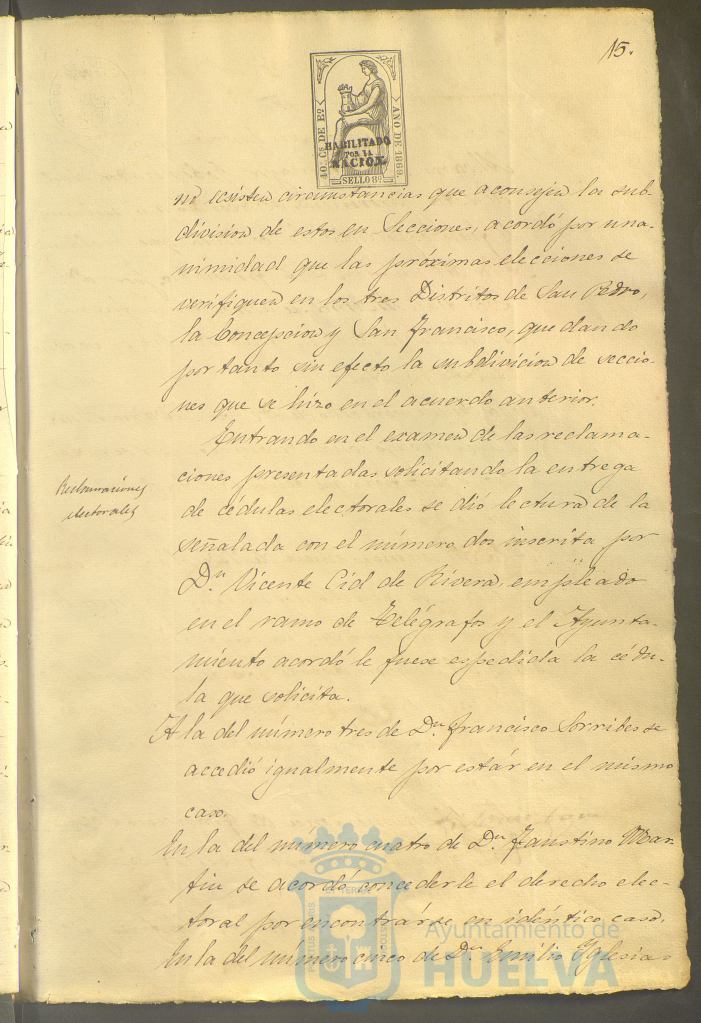 15.
40. Cs. DE Eº.
AÑO DE 1869.
HABILITADO
POR LA
NACION.
SELLO 8º.
no ecsisten circunstancias que aconsejen la sub-
division de estos en Secciones, acordó por una-
nimidad que las próximas elecciones se
verifiquen en los tres Distritos de San Pedro,
la Concepcion y San Francisco, quedando
por tanto sin efecto la subdivicion de seccio-
nes que se hizo en el acuerdo anterior.
Entrando en el examen de las reclama-
Reclamaciones
electorales
ciones presentadas solicitando la entrega
de cédulas electorales se dió lectura de la
señalada con el número dos inscrita por
Dn. Vicente Cid de Rivera, empleado
en el ramo de Telégrafos y el Ayunta-
miento acordó le fuese espedida la cédu-
la que solicita.
A la del número tres de Dn. Francisco Sorribes se
accedió igualmente por estár en el mismo
caso.
En la del número cuatro de Dn. Faustino Mar-
tin se acordó concederle el derecho elec-
toral por encontrárse en idéntico caso.
En la del número cinco de Dn. Emilio Yglesias
Ayuntamiento de
HUELVA